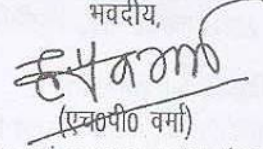 भवदीय,
(एच0पी0 वर्मा)